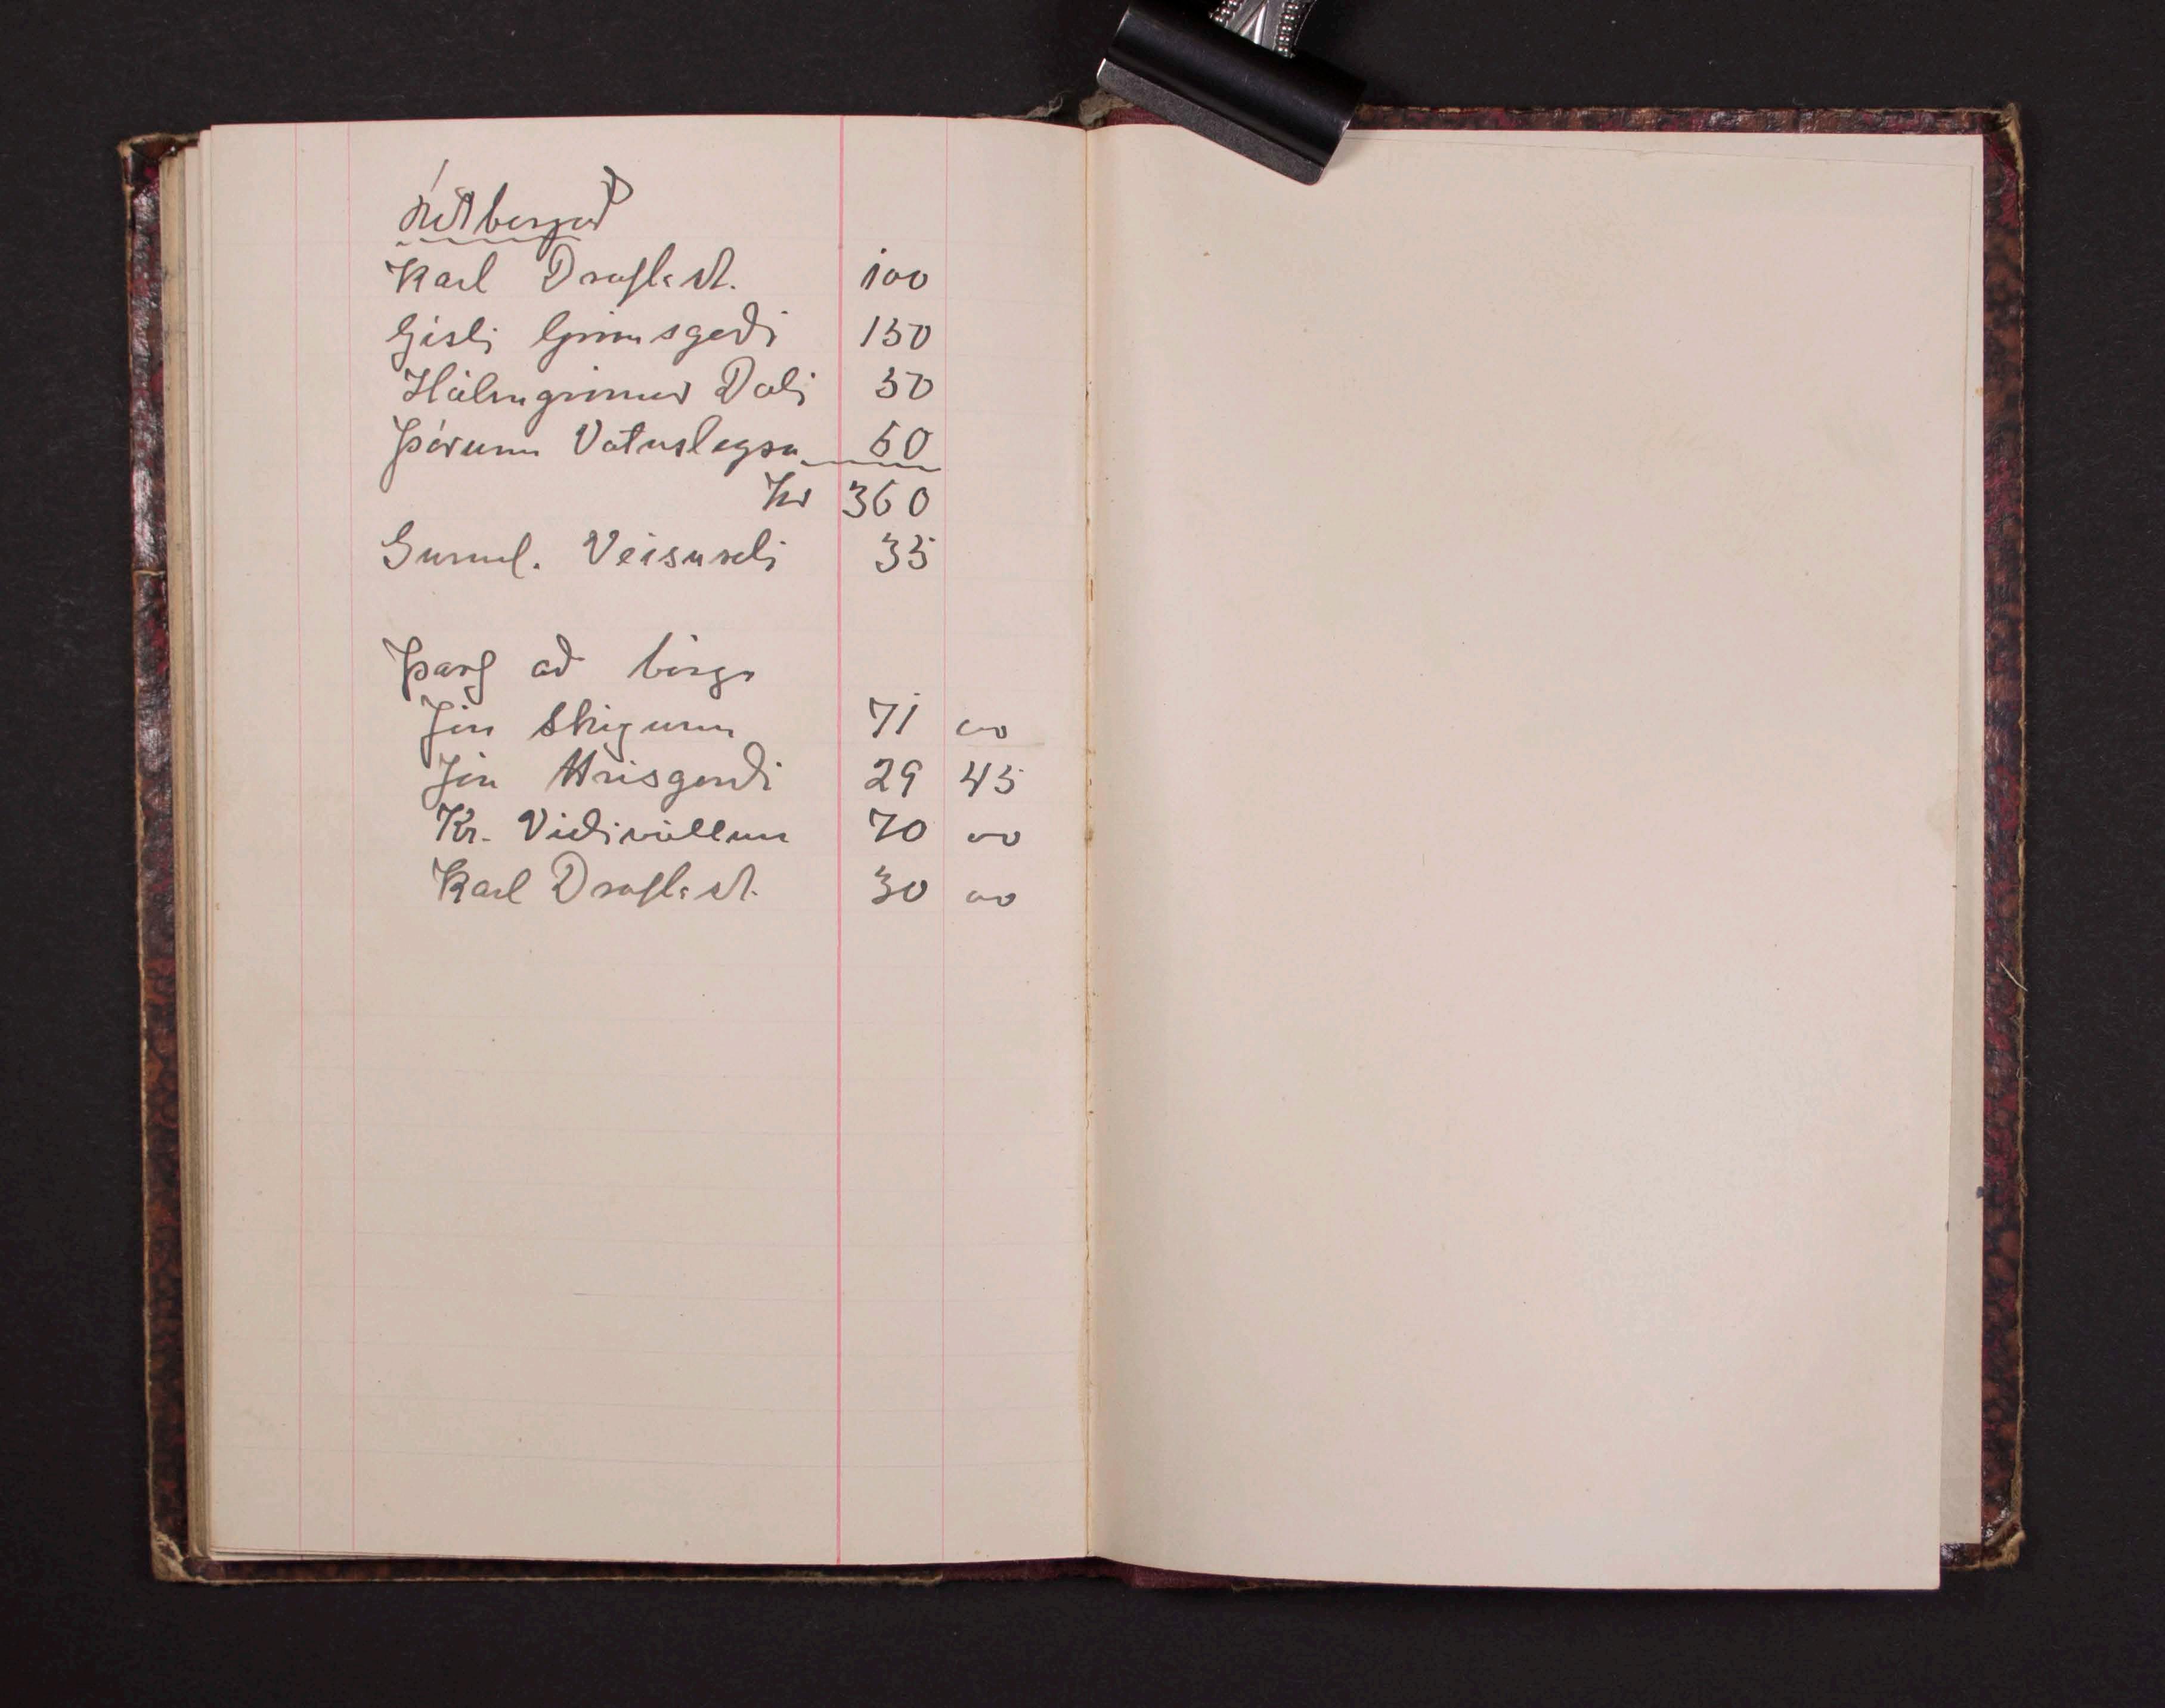 Útborgað
Karl Draflast. 100
Gísli Grímsgerði 150
Hálmgrímur Dali 50
Þórunn Vatnsleysu 60
Kr 360
Gunnl. Veisuseli 35
Þarf að borga
Jón Skógum 71 00
Jón Hrísgerði 29 45
Kr. Víðivöllum 70 00
Karl Draflast. 30 00